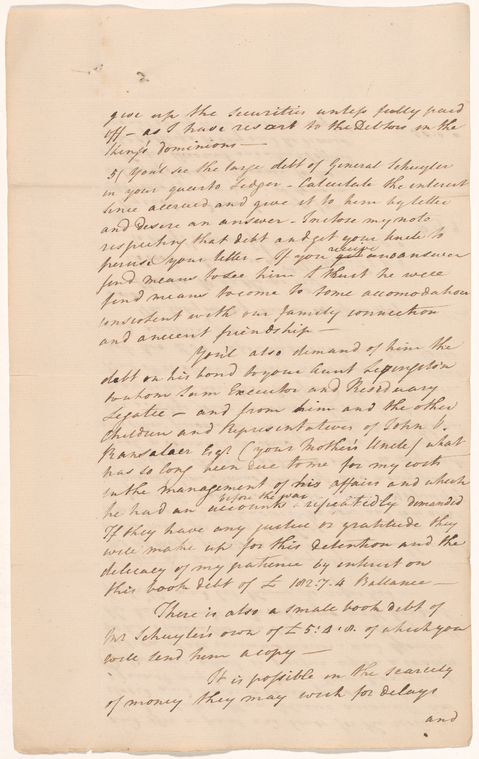 give up the securities unless fully paid
off – as I have resort to the Debtors in the
King's dominions –
5) You'l see the large debt of General Schuyler
in your quarto Ledger – Calculate the interest
since accrued and give it to him by letter
and desire an answer – Inclose my note
respecting that debt and get your Uncle to
peruse your letter – If you receive no answer
find means to see him I trust he will
find means to come to some accomodation
consistent with our family connection
and ancient friendship –
You'l also demand of him the
debt on his bond to your Aunt Livingston
to whom I am Executor and Residuary
Legatee – and from him and the other
Children and Representatives of John V.
Ransalaer Esqr (your Mother's Uncle) what
has so long been due to me for my costs
in the management of his affairs and which
he had an account & before the war repeatedly demanded
If they have any justice or gratitude they
will make up for this detention and the
delicacy of my patience by interest on
this book debt of £ 182:7.4 Ballance –
There is also a small book debt of
Mr Schuyler's own of £5:4.8. of which you
will send him a copy –
It is possible in the scarcity
of money they may wish for delays
and